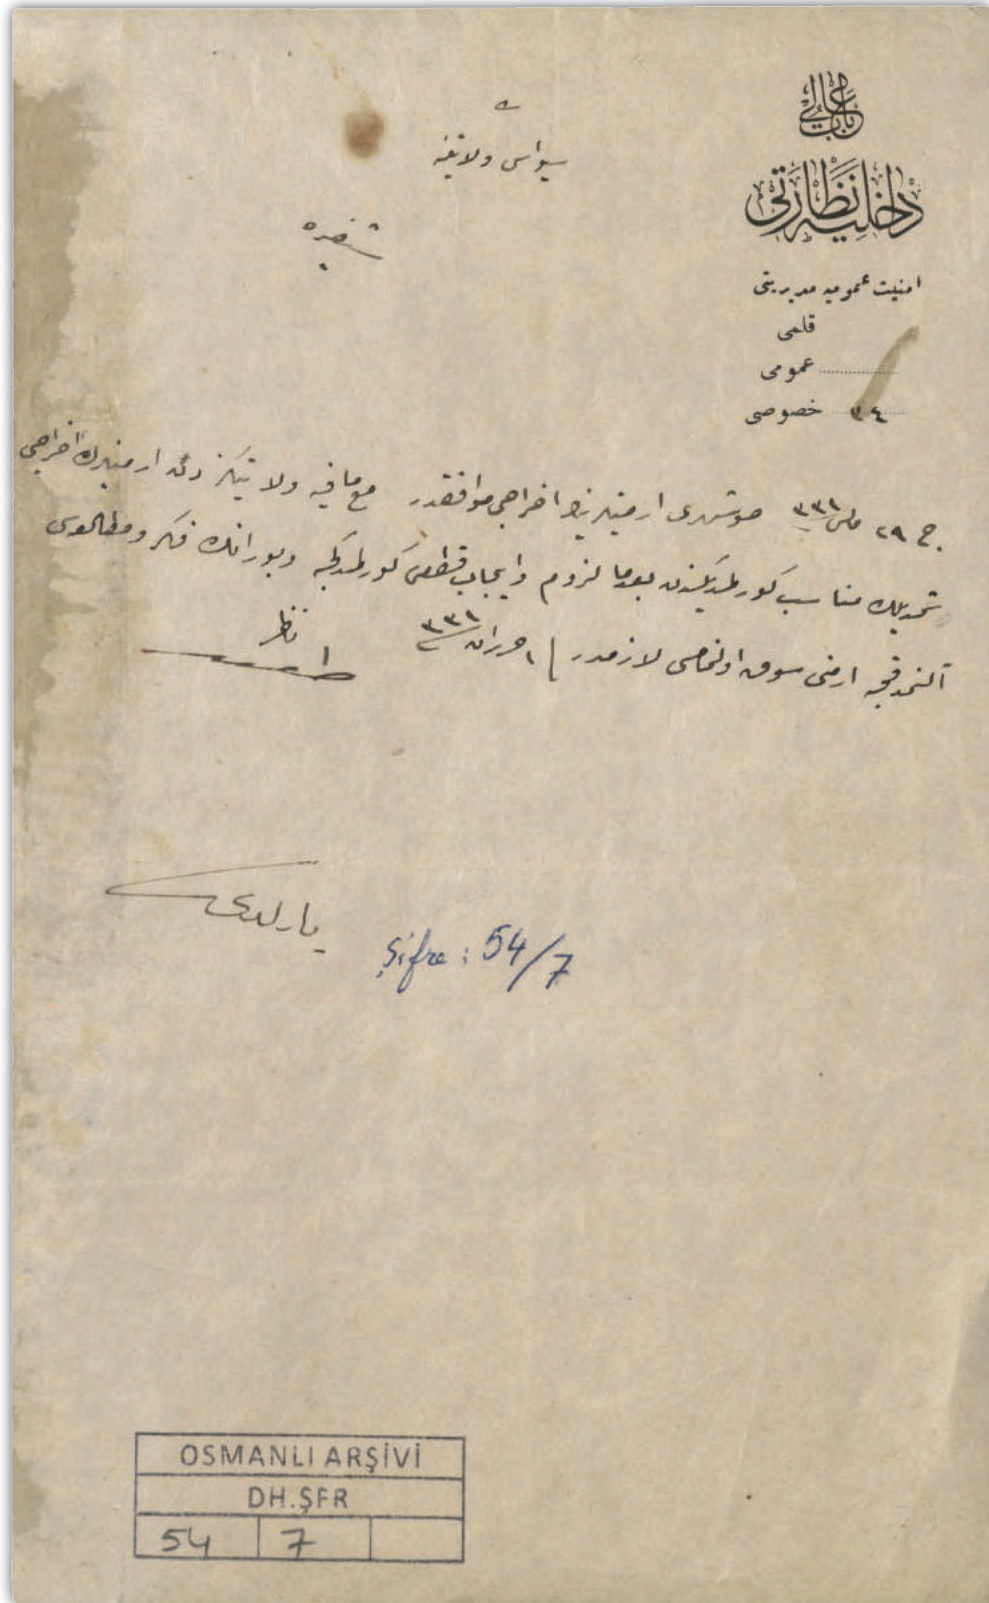 باب عالی
داخلیه نظارتی
امنیت عمومیه مدیریتی
قلمی
عمومی
خصوصی ٣٤
سیواس ولایتنه
شفره
ج ٢٩ مایس ٣٣١ ارمنیلرینك اخراجی موافقدر مع مافیه ولایتكز ارمنیلرك اخراجی
مناسب كورلمدیكندن بعدما لزوم وایجاب قطعی كورلمدكجه وبورانك فكر ومطالعه‌سی
آلنمدقجه ارمنی سوق اولنمامسی لازمدر ١ حزیران ٣٣١
ناظر
یازلدی
Şifre : 54/7
OSMANLI ARŞİVİ
DH.ŞFR
54 7